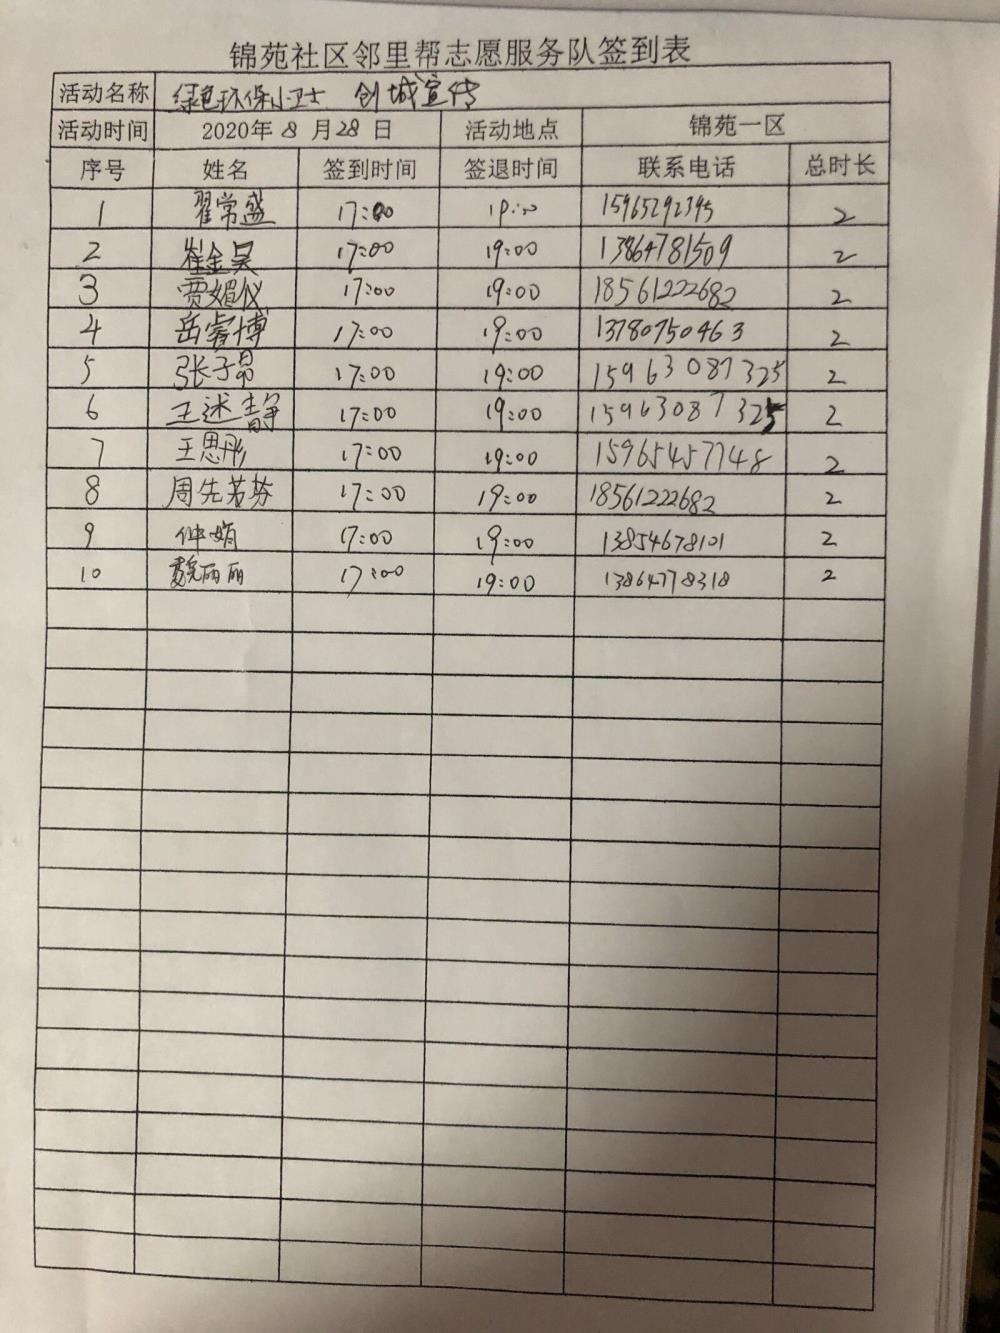 锦苑社区邻里帮志愿服务队签到表
活动名称 绿色环保小卫士 创城宣传
活动时间 2020年 8 月 28 日 活动地点 锦苑一区
序号 姓名 签到时间 签退时间 联系电话 总时长
1 翟常盛 17:00 19:00 15965292395 2
2 崔金昊 17:00 19:00 13864781509 2
3 贾媚仪 17:00 19:00 18561222682 2
4 岳睿博 17:00 19:00 13780750463 2
5 张子昂 17:00 19:00 15963087325 2
6 王述静 17:00 19:00 15963087325 2
7 王思彤 17:00 19:00 15965457748 2
8 周先若芬 17:00 19:00 18561222682 2
9 仲娟 17:00 19:00 13854678101 2
10 魏丽丽 17:00 19:00 13864778318 2